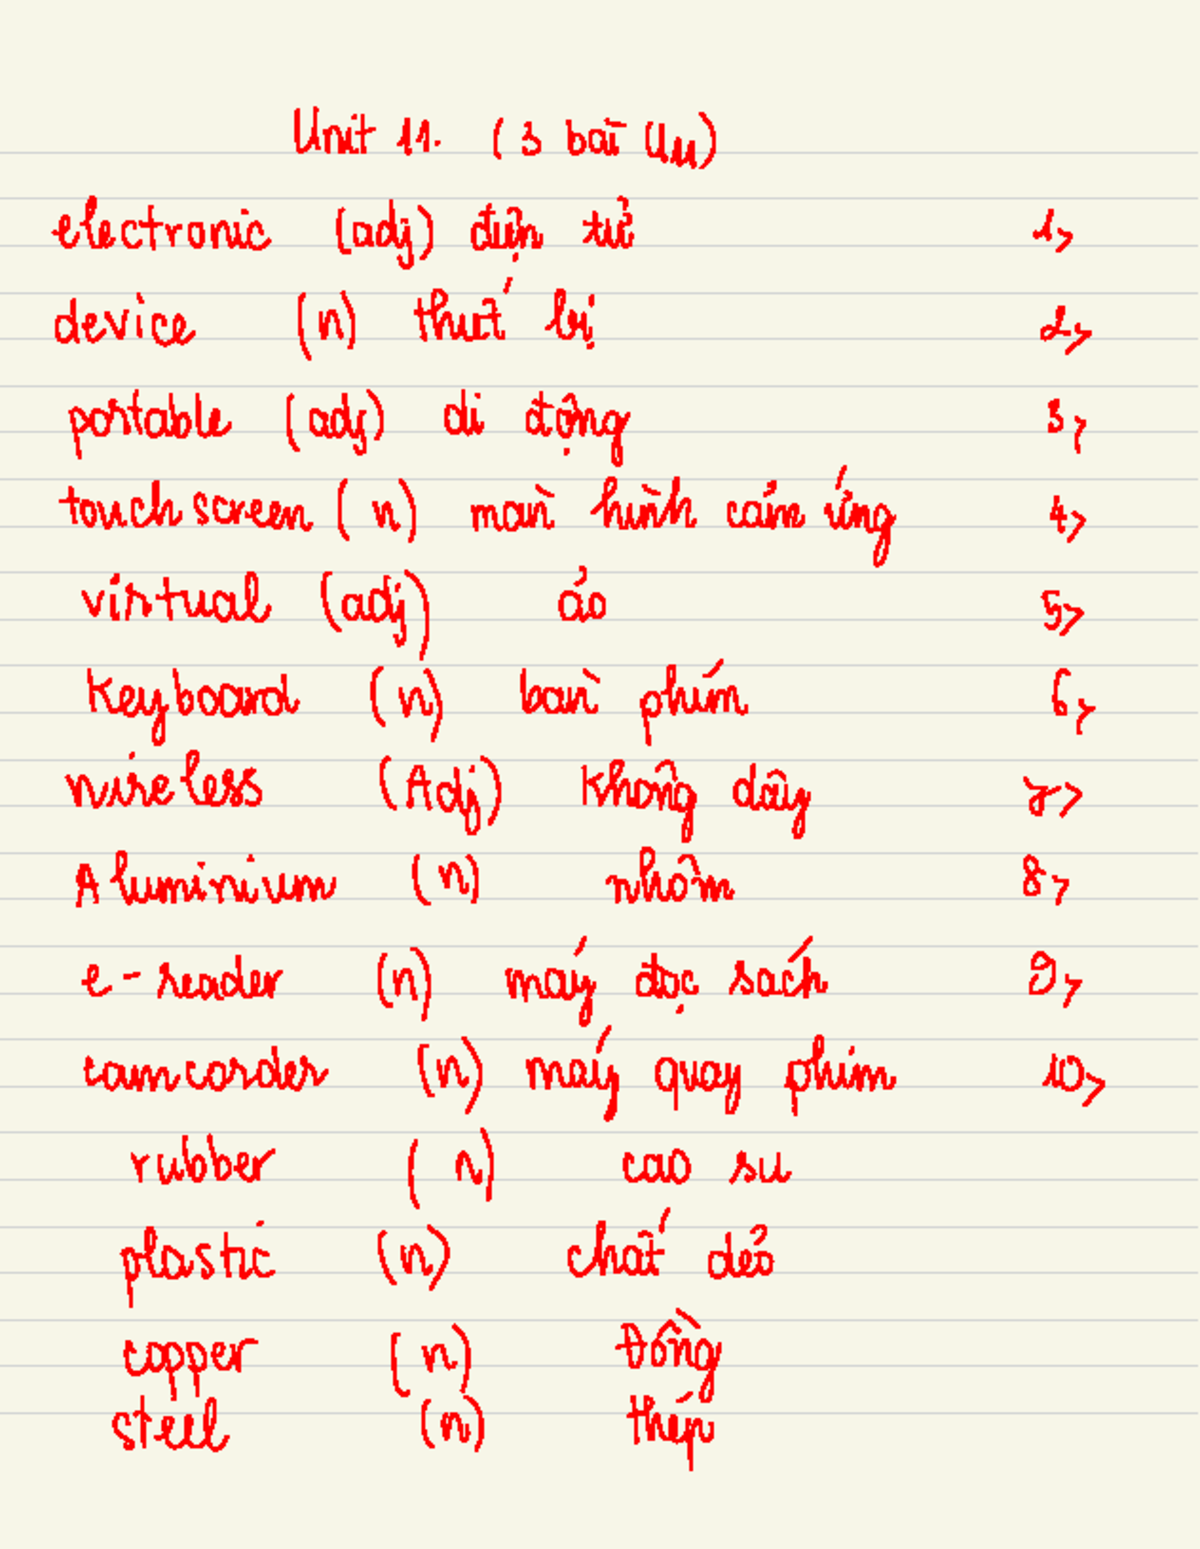 Unit 11. (3 bài
electronic (adj) điện tử 1>
device (n) thiết bị 2>
portable (adj) di động 3>
touch screen (n) màn hình cảm ứng 4>
virtual (adj) ảo 5>
Keyboard (n) bàn phím 6>
wireless (Adj) Không dây 7>
Aluminium (n) nhôm 8>
e-reader (n) máy đọc sách 9>
camcorder (n) máy quay phim 10>
rubber (n) cao su
plastic (n) chất dẻo
copper (n) Đồng
steel (n) thép